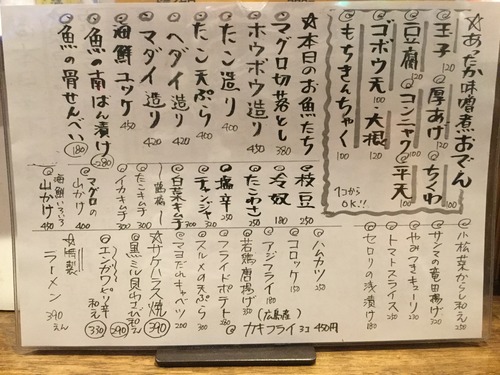 ☆あったか味噌煮おでん
玉子 120
厚あげ 120
ちくわ 100
豆腐 120
コンニャク 100
平天 100
ゴボウ天 100
大根 120
もちきんちゃく 100
1コから OK!!
☆本日のお魚たち
マグロ切落とし 380
ホウボウ造り 450
たこ造り 400
たこ天ぷら 400
ヘダイ造り 420
マダイ造り 420
海鮮ユッケ 450
魚の南ばん漬け 280
魚の骨せんべい 180
枝豆 250
冷奴 180
たこわさ 250
塩辛 250
チャンジャ 320
白菜キムチ 300
たこキムチ 300
イカキムチ 300
マグロの山かけ 400
海鮮いろいろ山かけ 450
小松菜からし和え 250
サンマの竜田揚げ 220
やみつきキューリ 220
トマトスライス 220
セロリの浅漬け 180
ハムカツ 250
コロッケ 150
アジフライ 180
若鶏唐揚げ 350
フライドポテト 280
スルメの天ぷら 300
マヨたれキャベツ 200
(広島産)
カキフライ 3コ 450円
☆ナカハラミ焼 390
黒ミル貝わさび和え 290
エンガワピリ辛和え 330
ラーメン 390えん